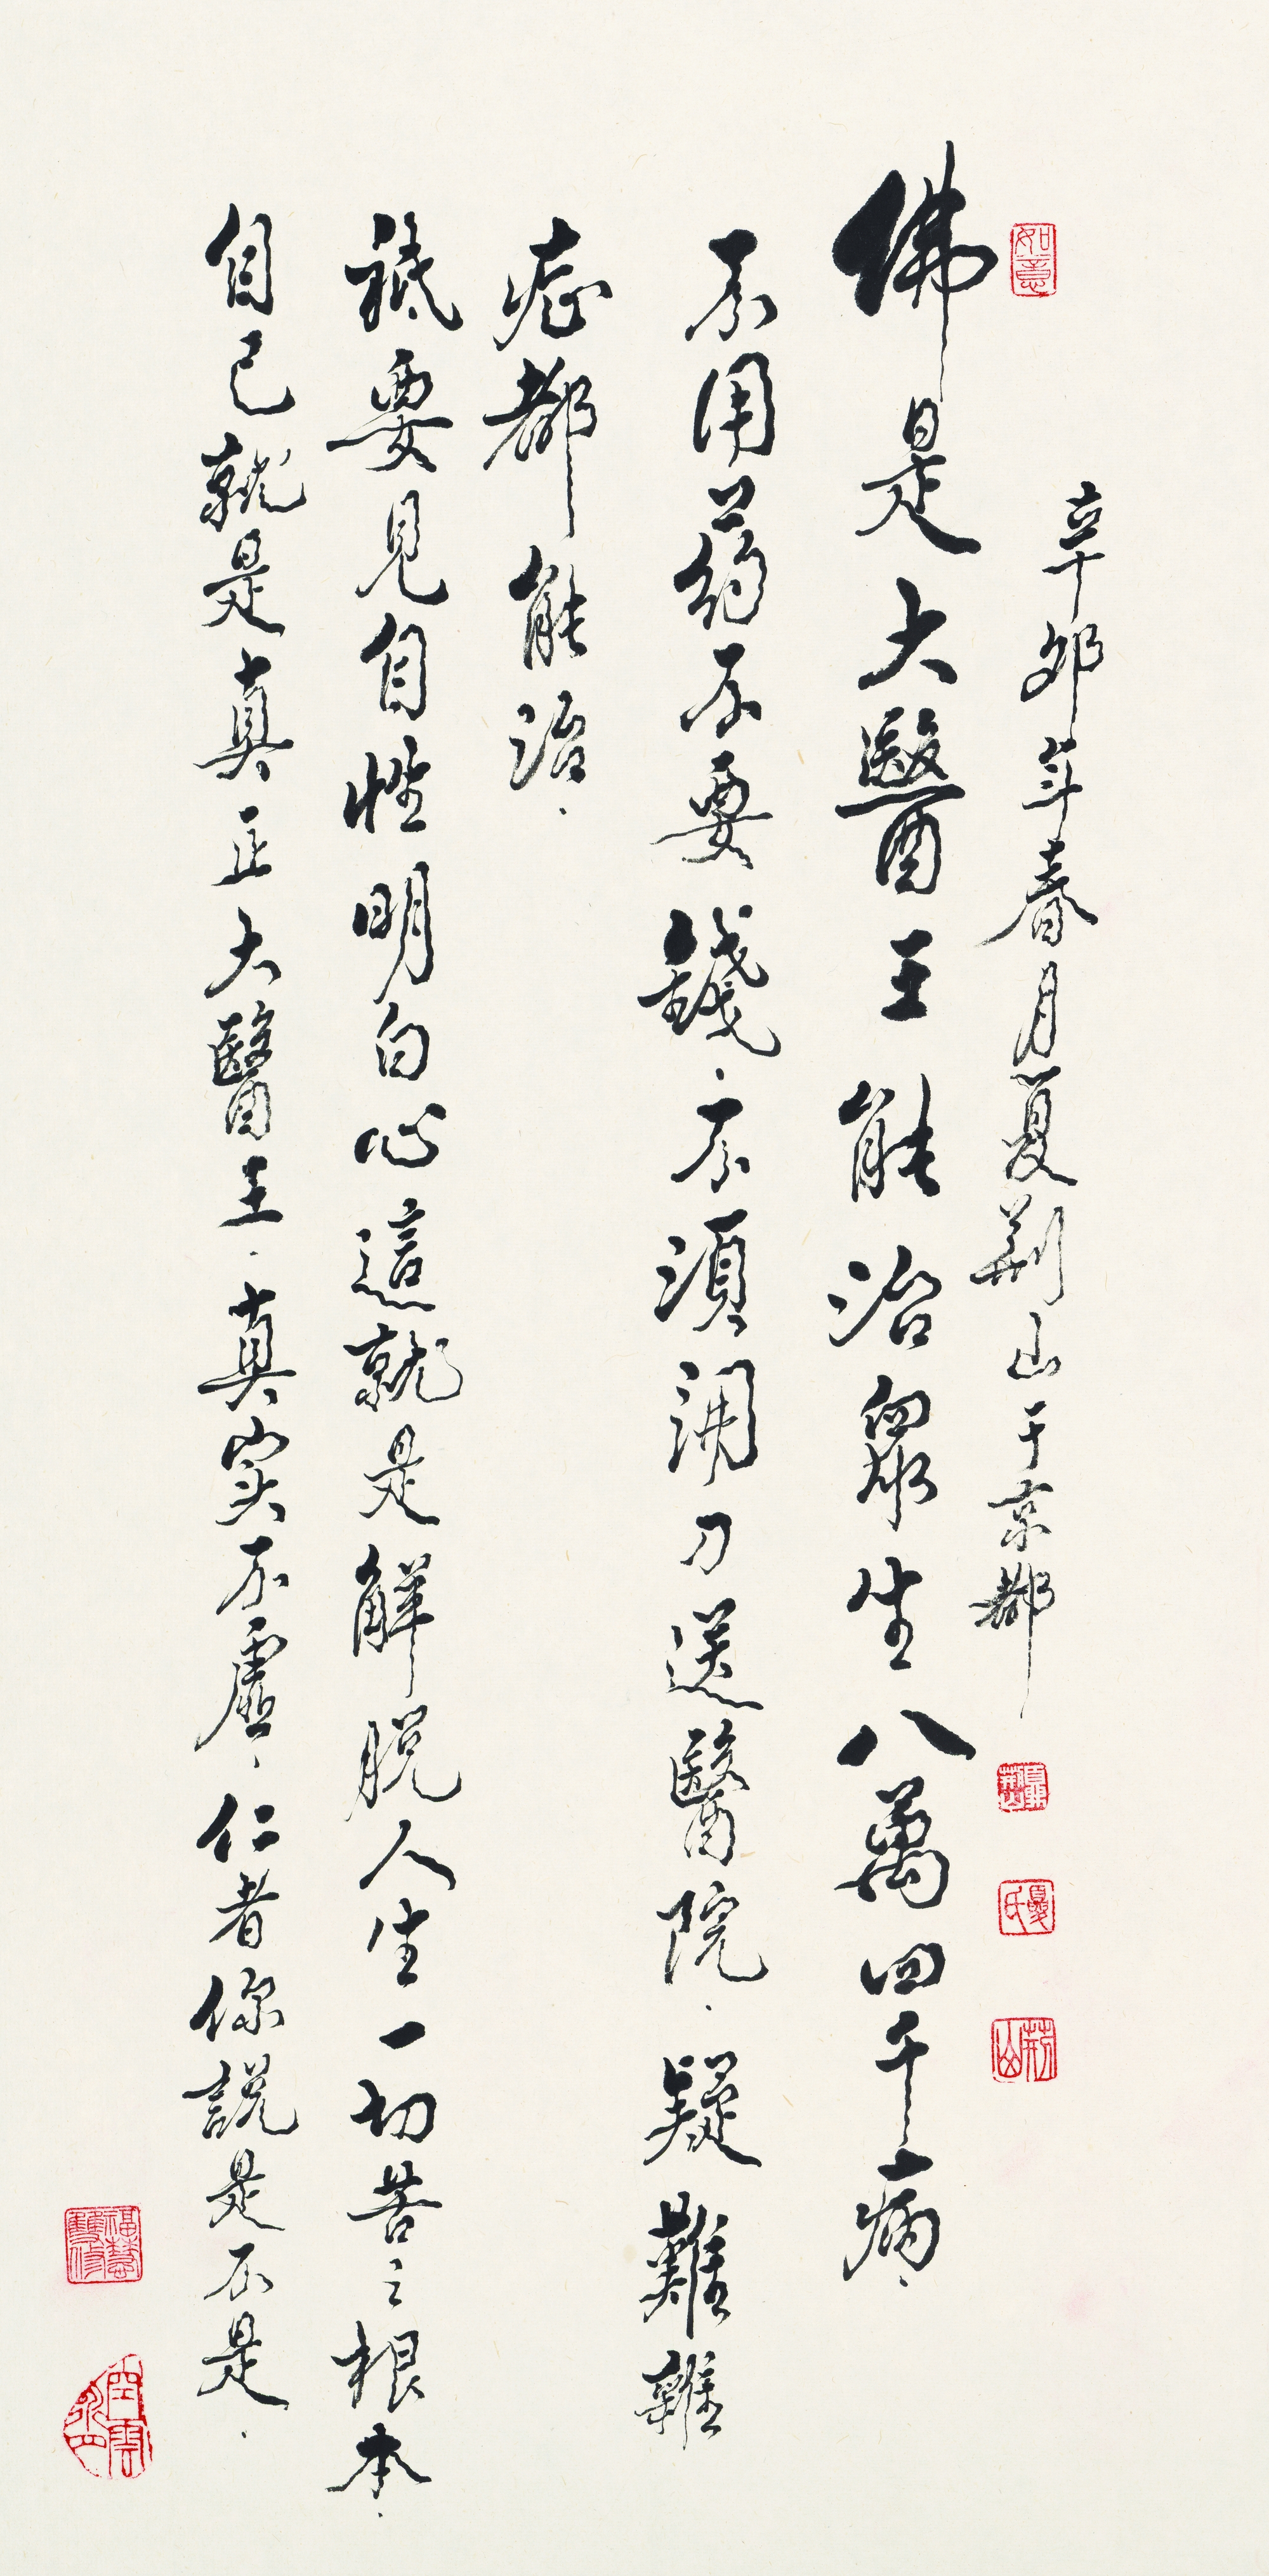 如意
辛卯年春月夏荆山于京都
佛是大醫王能治眾生八萬四千病
不用药不要錢不須開刀送醫院疑難雜
症都能治
祇要見自性明白心這就是解脱人生一切苦之根本
自己就是真正大醫王真实不虛仁者你説是不是
夏氏
荆山
福慧雙修